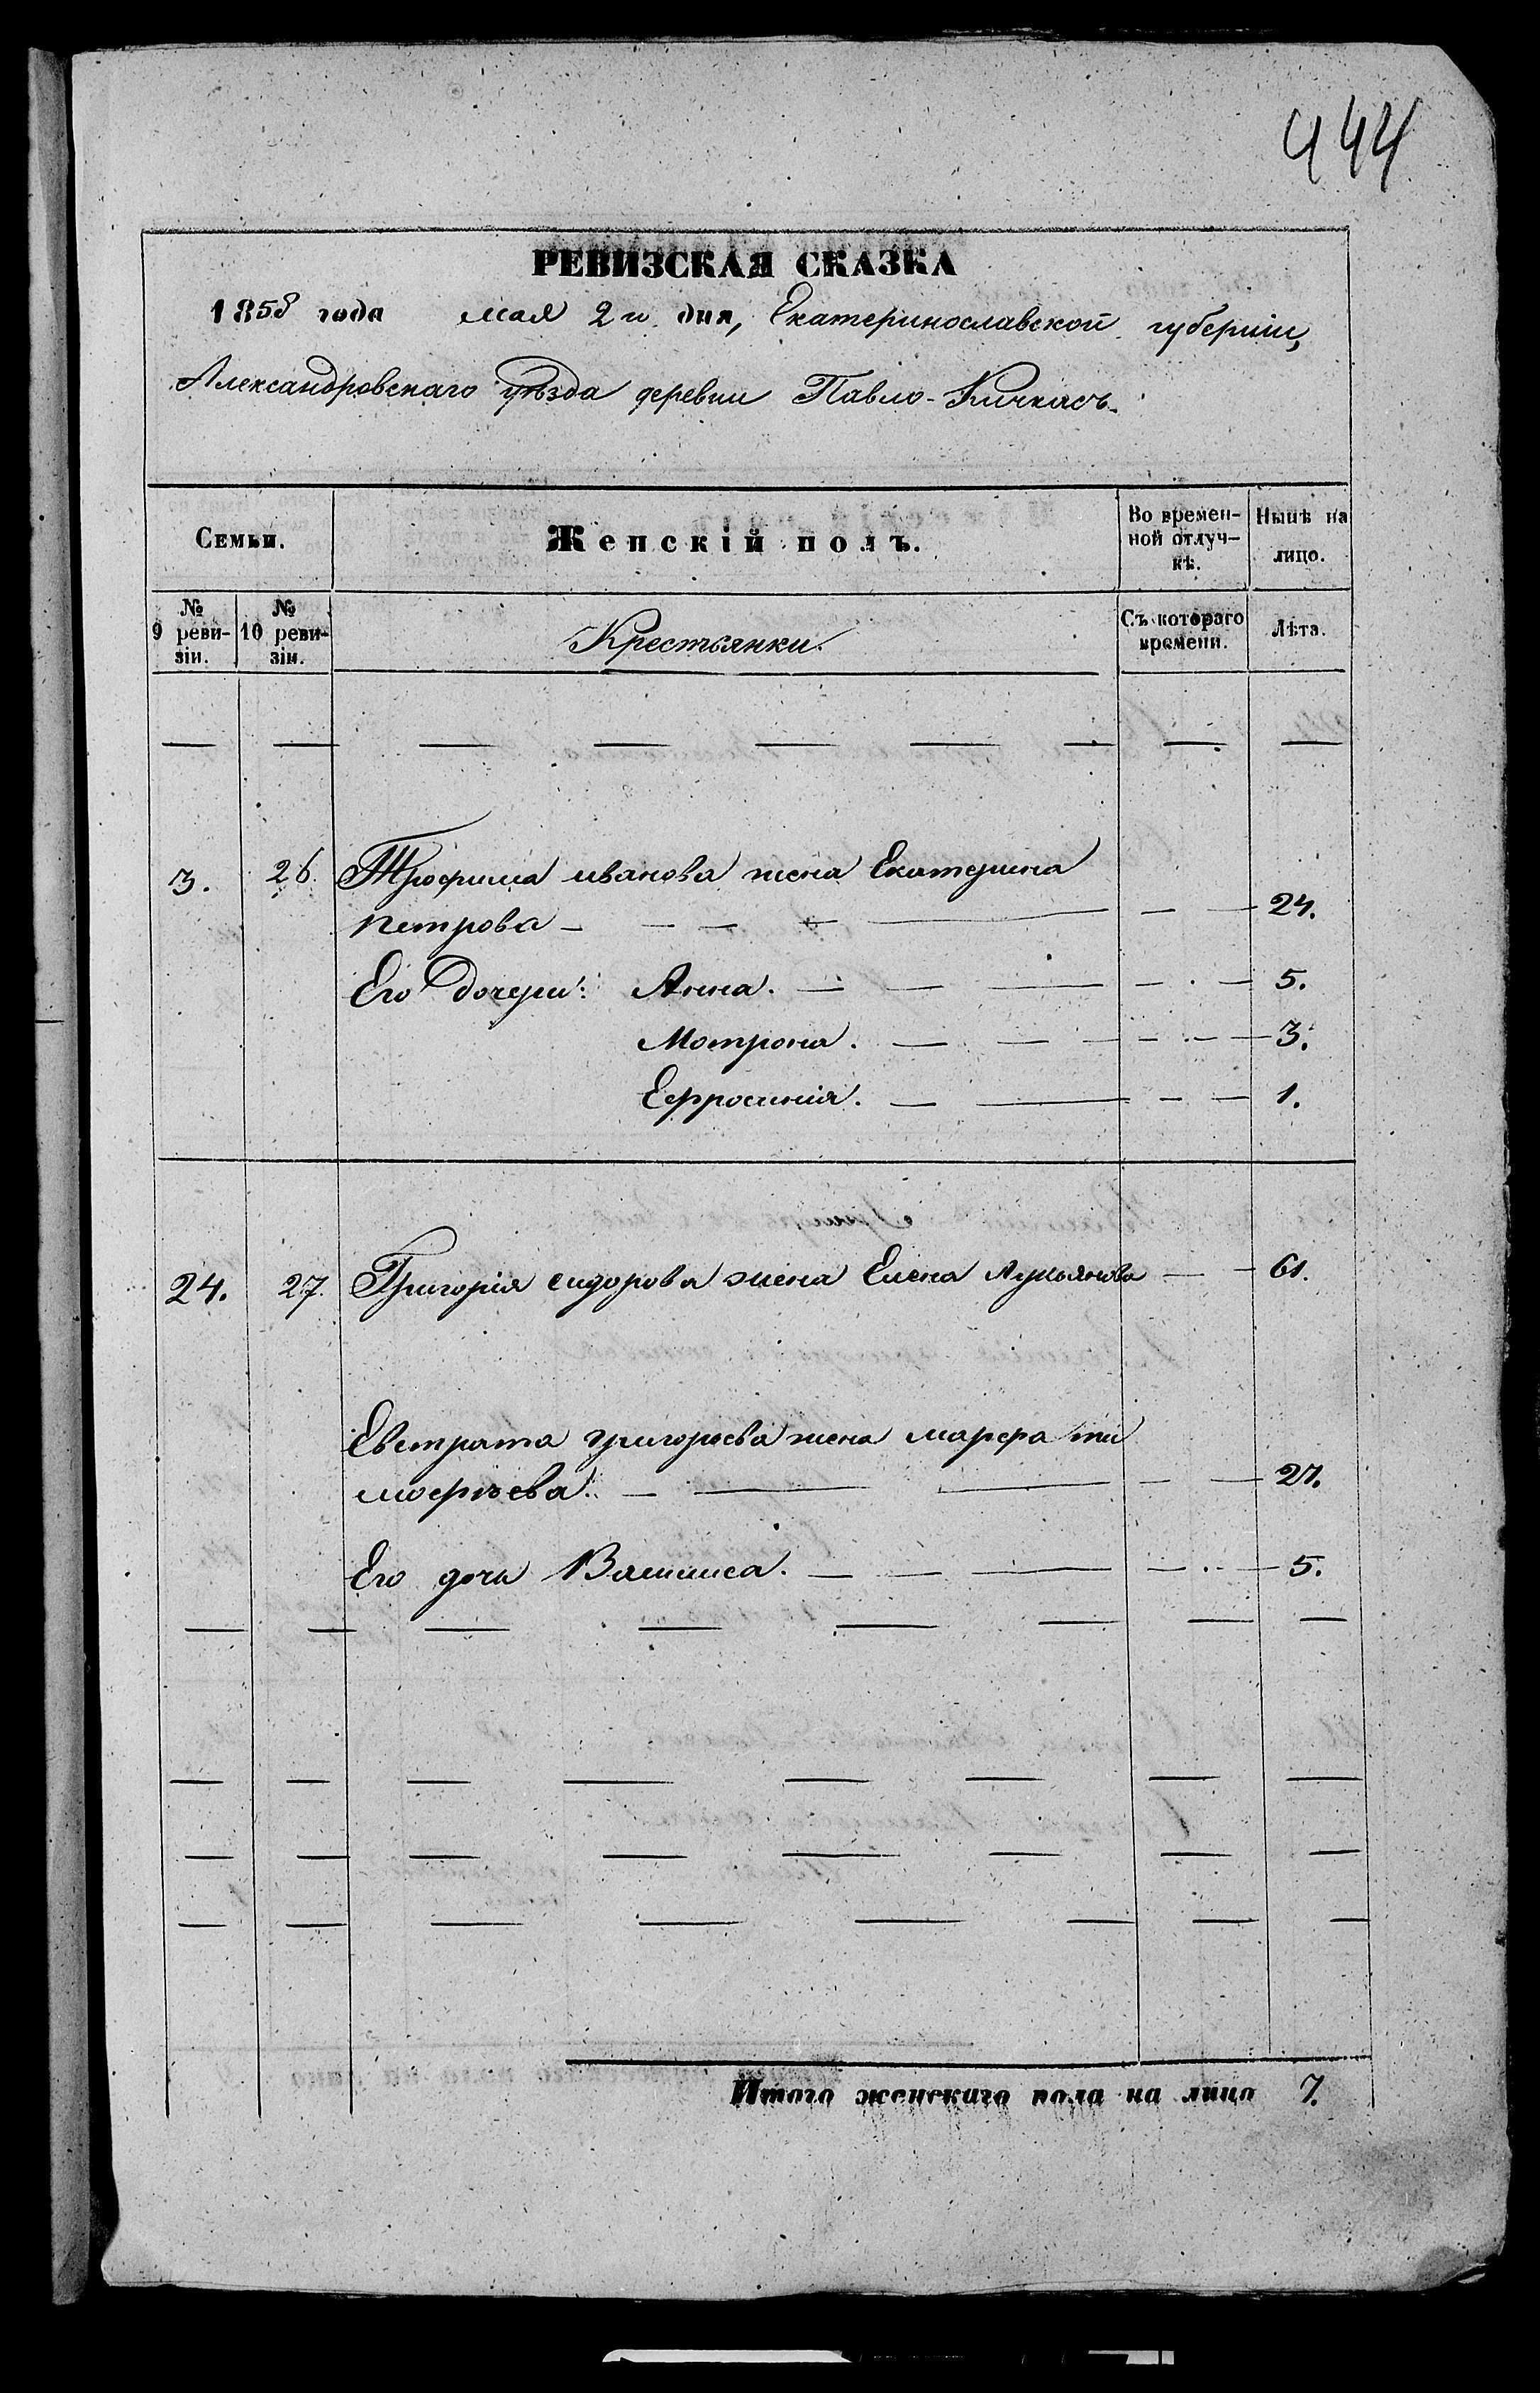 444
РЕВИЗСКАЯ СКАЗКА
1858 года мая 2го дня, Екатеринославской губерніи,
Александровскаго уѣзда деревни Павло-Кичкасъ.
Семьи.
Женскій полъ.
Во времен-
ной отлуч-
кѣ.
Нынѣ на
лицо.
№
9 реви-
зіи.
№
10 реви-
зіи.
Крестьянки.
Съ котораго
времени.
Лѣта.
3. 26. Трофима иванова жена Екатерина
петрова — 24.
Его дочери: Анна. — 5.
Мотрона. — 3.
Ефросинія. — 1.
24. 27. Григорія сидорова жена Елена Лукьянова — 61.
Евстрата григорьева жена марфа ти
мофѣева. — 27.
Его дочь Василиса. — 5.
Итого женскаго пола на лицо 7.